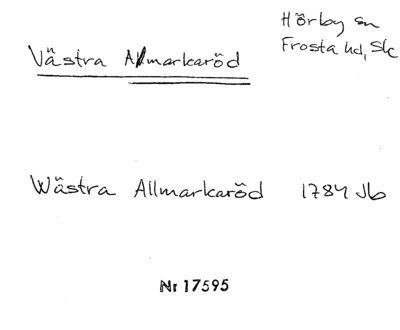 Hörby sn
Västra Allmarkaröd
Frosta hd, Sk
Wästra Allmarkaröd 1784 Jb
Nr 17595